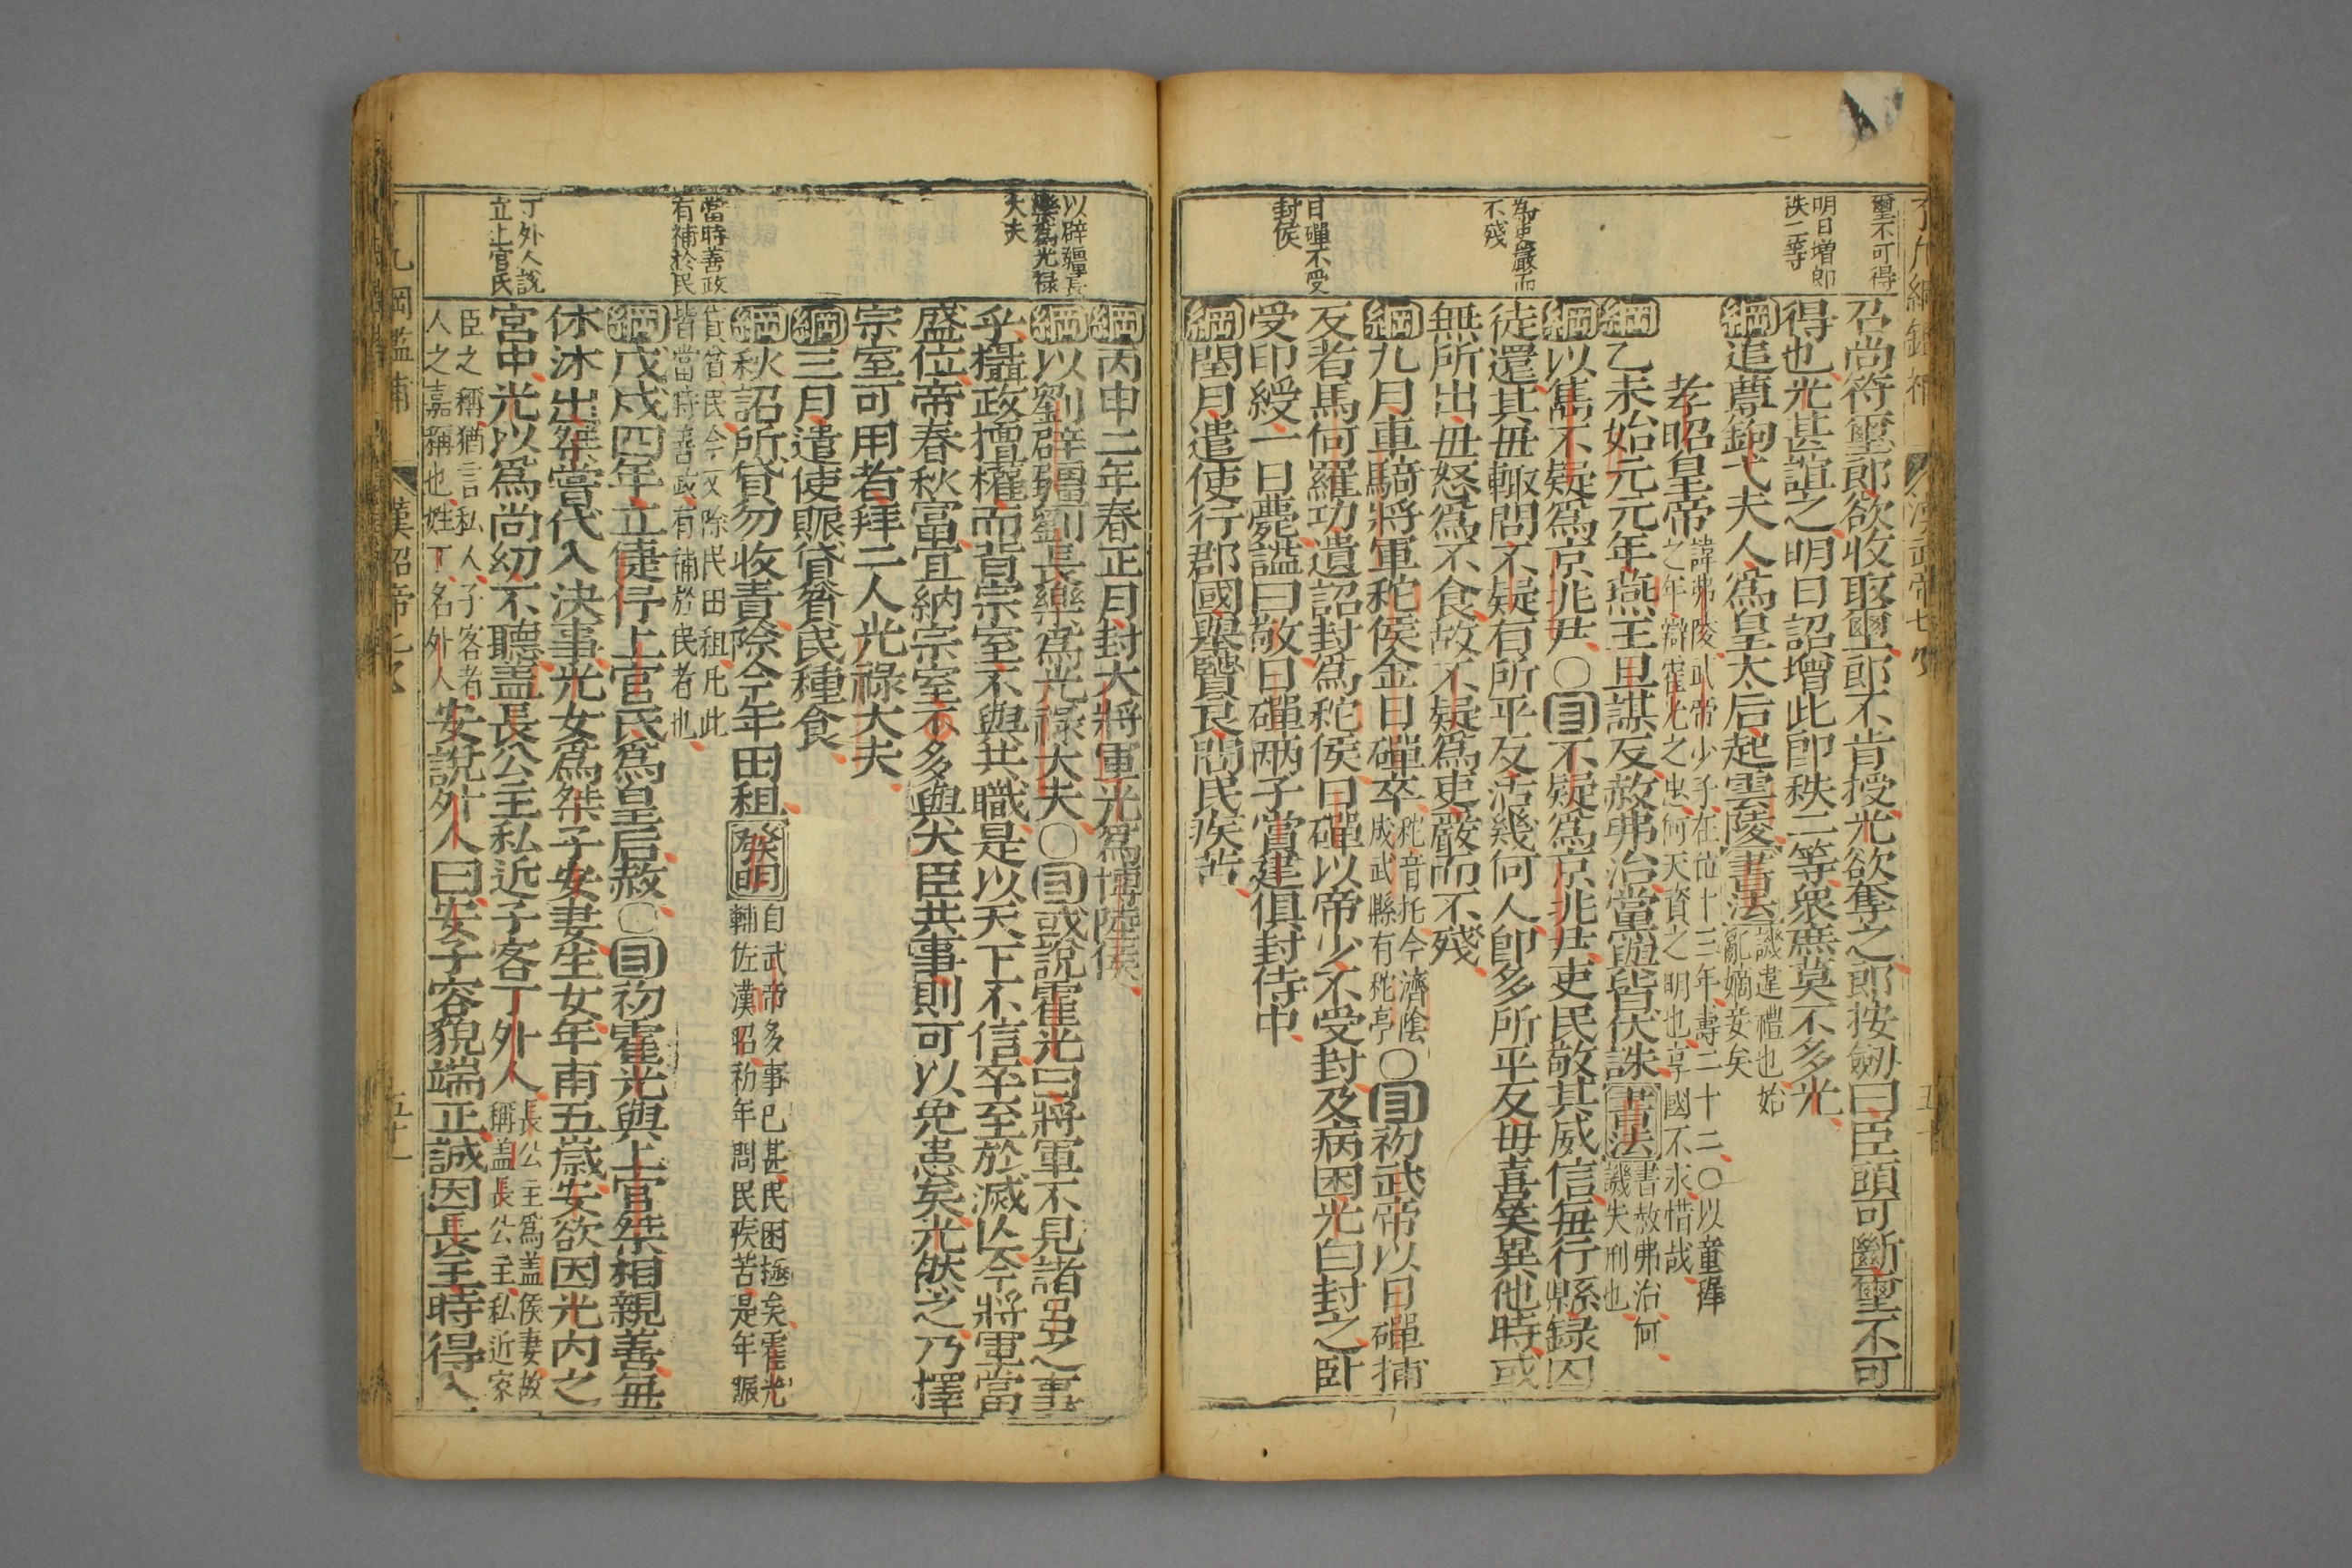 璽不可得
明日増郎
秩二等
為吏嚴而
不殘
日磾不受
封侯
召尚符璽郎欲收取璽郎不肯授光欲奪之郎按劒曰臣頭可斷璽不可
得也光甚誼之明日詔增此郎秩二等衆庶莫不多光
綱追尊鉤弋夫人爲皇太后起雲陵書法譏違禮也始
亂嫡妾矣
孝昭皇帝諱弗陵武帝少子在位十三年壽二十二〇以童穉
之年辯霍光之忠何天資之明也享國不永惜哉
綱乙未始元元年燕王旦謀反赦弗治黨與皆伏誅書法書赦弗治何
譏失刑也
綱以雋不疑爲京兆尹〇目不疑爲京兆尹吏民敬其威信每行縣録囚
徒還其毋輙問不疑有所平反活幾何人卽多所平反毋喜笑異他時或
無所出毋怒爲不食故不疑爲吏嚴而不殘
綱九月車騎將軍秺侯金日磾卒秺音托今濟陰
成武縣有秺亭〇目初武帝以日磾捕
反者馬何羅功遺詔封爲秺侯日磾以帝少不受封及病困光白封之臥
受印綬一日薨謚曰敬日磾兩子賞建俱封侍中
綱閏月遣使行郡國舉賢良問民疾苦
以辟疆長
樂爲光禄
大夫
當時善政
有補於民
丁外人說
立上官氏
綱丙申二年春正月封大將軍光爲博陸侯
綱以劉辟疆劉長樂爲光祿大夫〇目或說霍光曰將軍不見諸呂之事
乎攝政擅權而背宗室不與共職是以天下不信卒至於滅亾今將軍當
盛位帝春秋富宜納宗室不多與大臣共事則可以免患矣光然之乃擇
宗室可用者拜二人光祿大夫
綱三月遣使賑貸貧民種食
綱秋詔所貸勿收責除今年田租發明自武帝多事已甚民困極矣霍光
輔佐漢昭初年問民疾苦是年賑
貸貧民今又除民田租凡此
皆當時善政有補於民者也
綱戊戌四年立倢伃上官氏爲皇后赦〇目初霍光與上官桀相親善每
休沐出桀嘗代入決事光女爲桀子安妻生女年甫五歲安欲因光內之
宮中光以爲尚幼不聽盖長公主私近子客丁外人長公主爲盖侯妻故
稱盖長公主私近寮
臣之稱猶言私人子客者
人之嘉稱也姓丁名外人安說外人曰安子容貌端正誠因長主時得入